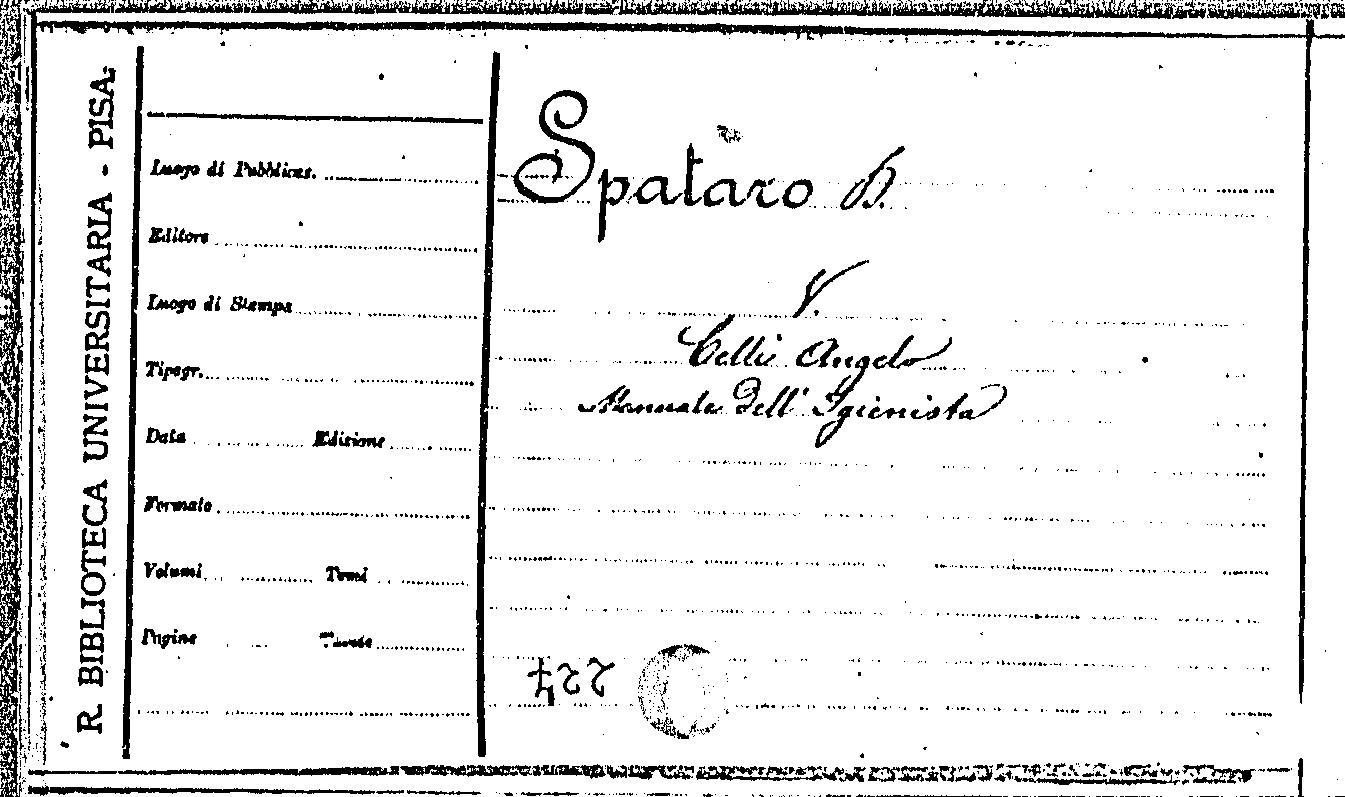 R. BIBLIOTECA UNIVERSITARIA - PISA.
Luogo di Pubblicaz.
Editore
Luogo di Stampa
Tipogr.
Data Edizione
Formato
Volumi Tomi
Pagine Tavole
Spataro D.
V.
Celli Angelo
Manuale dell' Igienista